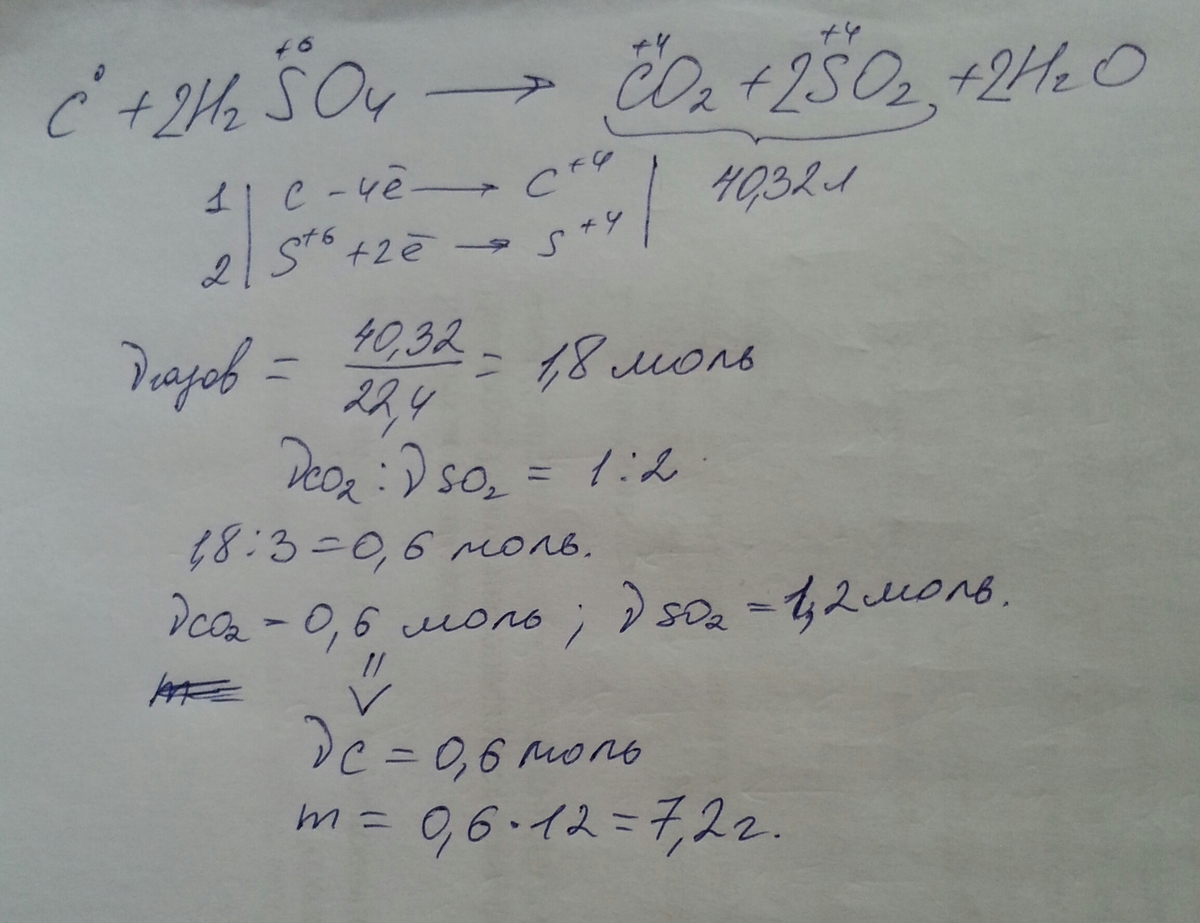 C⁰ + 2H₂S⁺⁶O₄ ⟶ C⁺⁴O₂ + 2S⁺⁴O₂ + 2H₂O
1 | C - 4ē ⟶ C⁺⁴ | 40,32 л
2 | S⁺⁶ + 2ē ⟶ S⁺⁴ |
νгазов = 40,32 / 22,4 = 1,8 моль
νCO₂ : νSO₂ = 1:2
1,8 : 3 = 0,6 моль.
νCO₂ = 0,6 моль ; νSO₂ = 1,2 моль.
⇓
νC = 0,6 моль
m = 0,6 · 12 = 7,2 г.